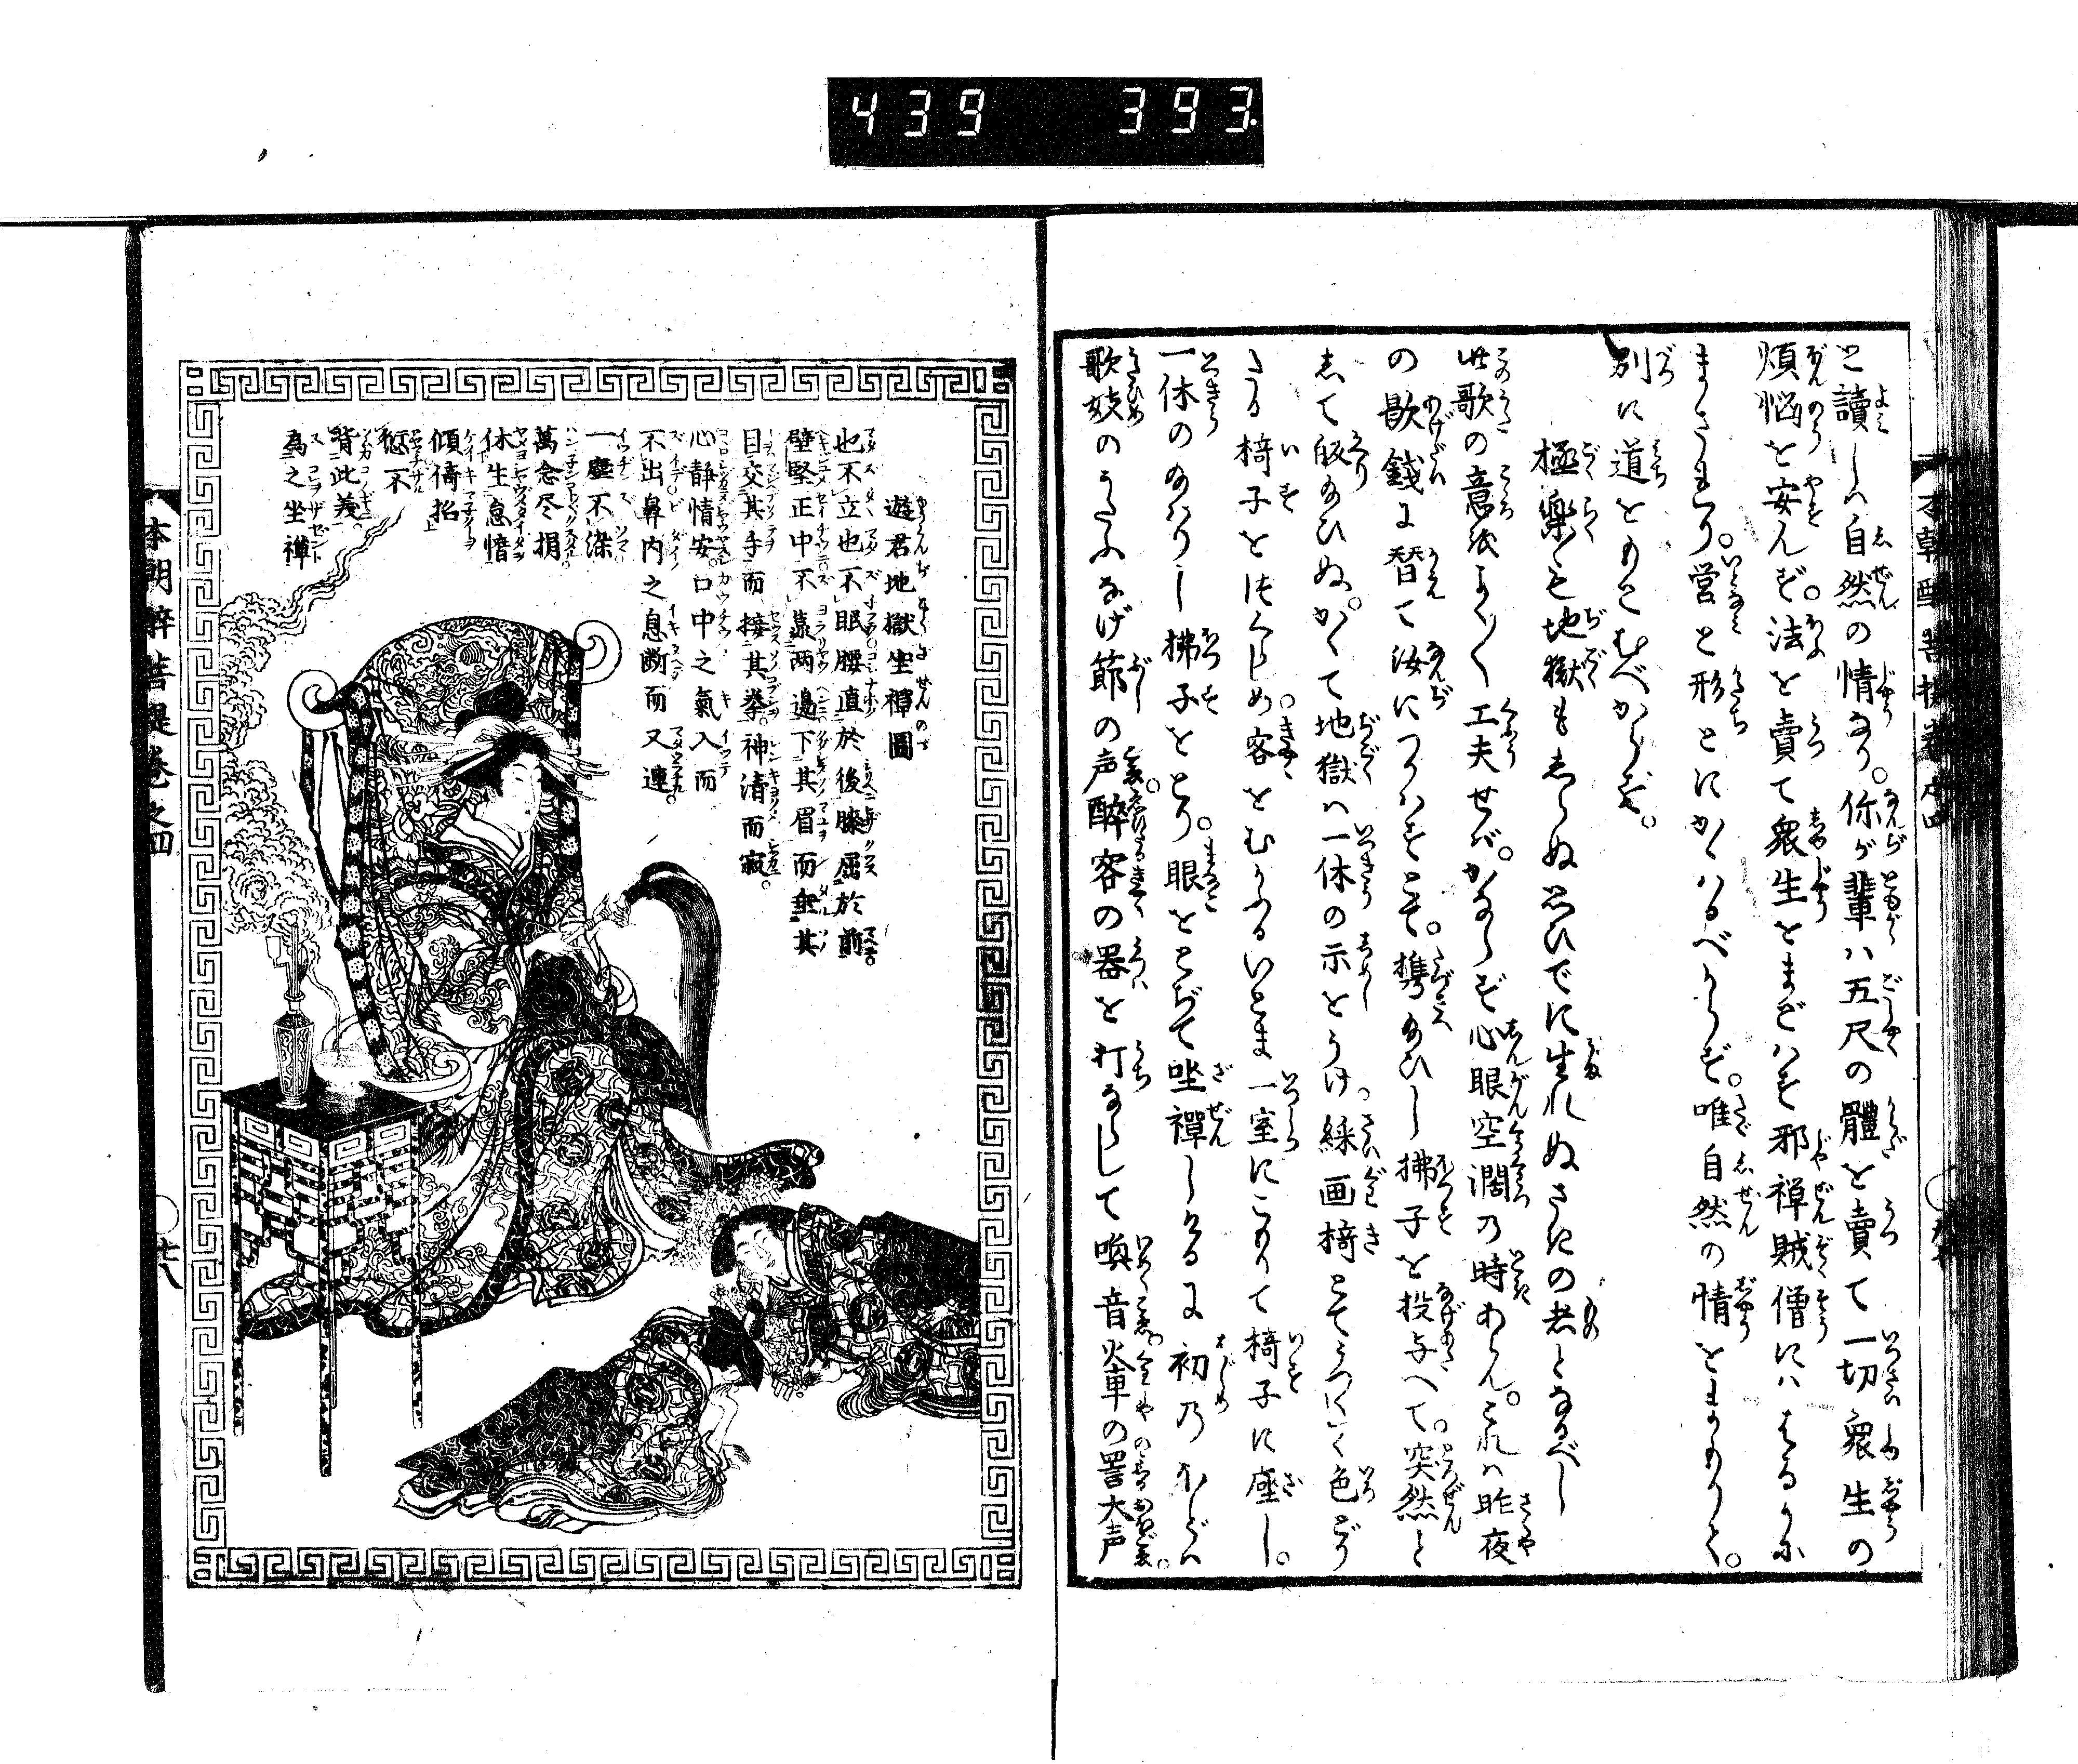 439 393
本朝酔菩提巻之四
と讀しハ自然の情なり。你が輩ハ五尺の體を賣て一切衆生の
煩悩を安んず。法を賣て衆生をまどハす邪禅賊僧にハはるかに
まされり。営と形とにかゝハるべからず。唯自然の情をまもりて。
別に道をもとむべからず。
極樂も地獄もしらぬ思ひでに生れぬさきの者となるべし
此歌の意味よく〳〵工夫せバ。かならず心眼空濶の時あらん。これハ昨夜
の歇錢に替て汝につかハすとて。携給ひし拂子を投与へて。突然と
して皈給ひぬ。かくて地獄ハ一休の示をうけ。綵画椅とてうつくしく色どり
たる椅子をはくしめ。客をむかふるいとま一室にこもりて椅子に座し。
一休のあたりし拂子をとり。眼をとぢて坐禪しけるに初のほどハ
歌妓のうたふなげ節の声。酔客の器を打ならして喚音火車の詈大声
遊君地獄坐禪圖
也不立也不眠腰直於後膝屈於前
壁堅正中不靠两邉下其眉而垂其
目交其手而接其拳。神清而寂。
心静情安。口中之氣入而
不出鼻内之息断而又連。
一塵不染
萬念尽捐
休生怠惰
傾倚招
愆不
背此義。
為之坐禪
本朝酔菩提巻之四
七八